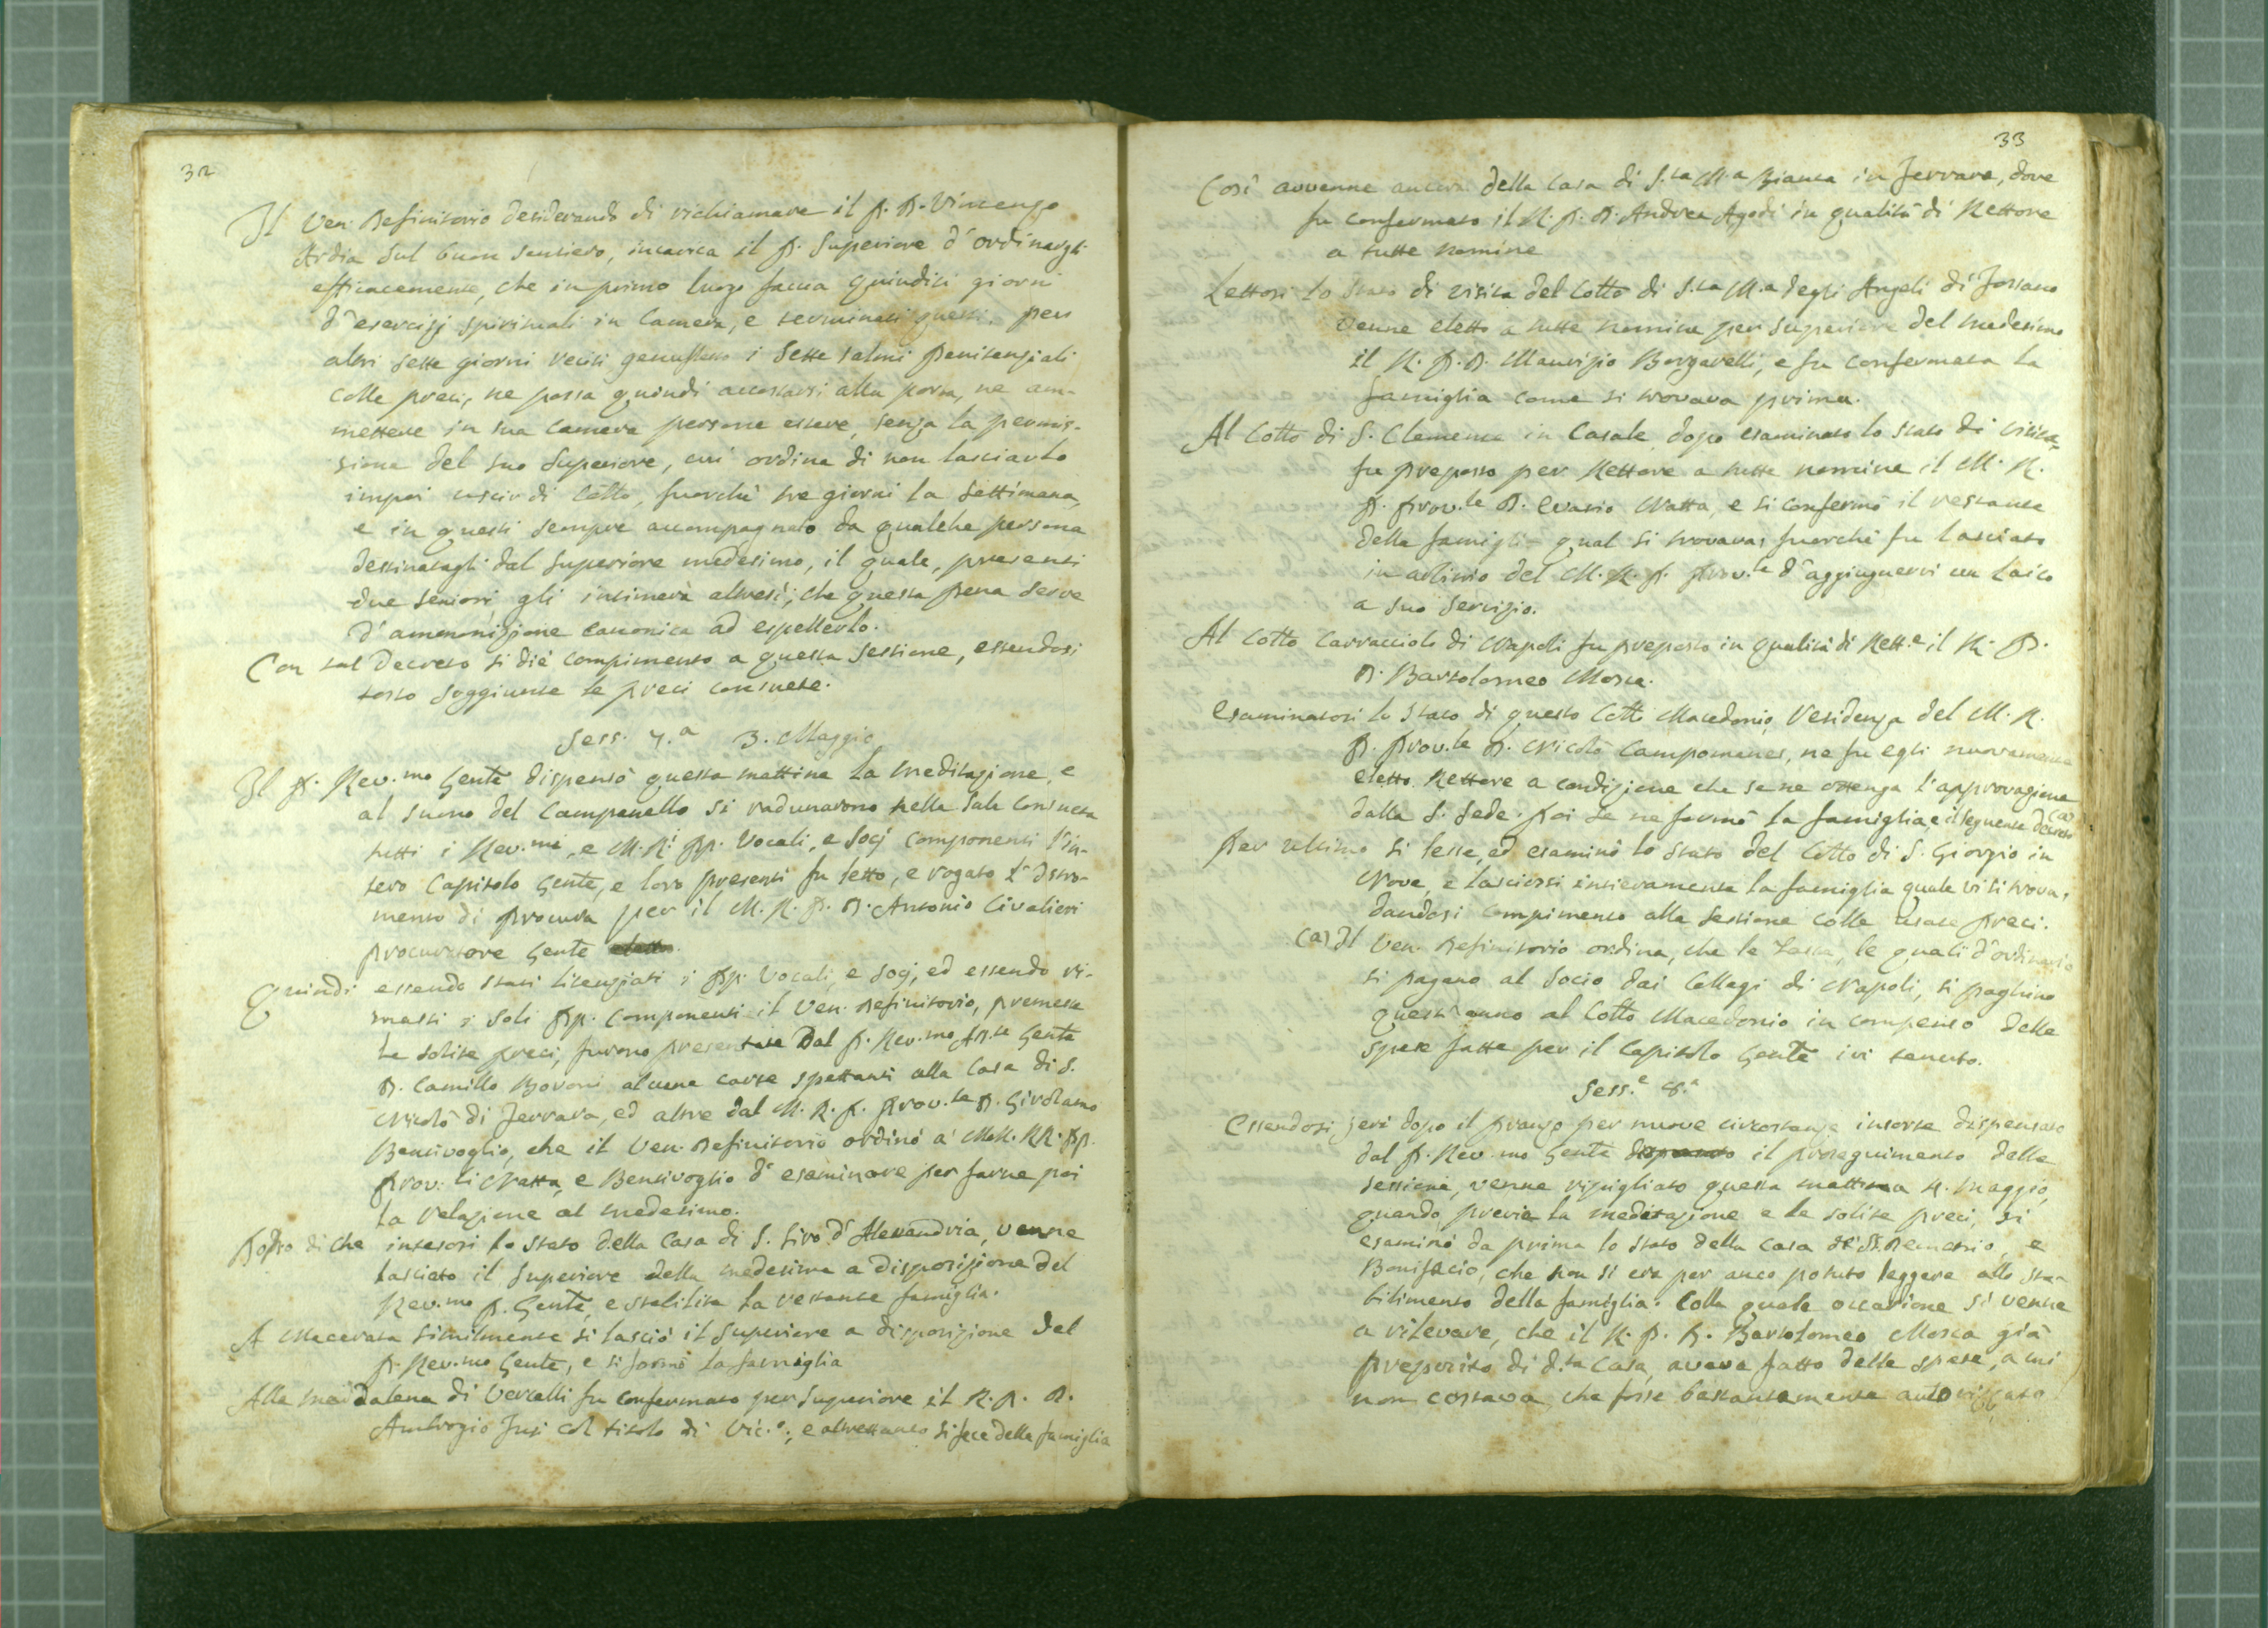 32
Il Ven. Definitorio desiderando di richiamare il P. D. Vincenzo
Ardia sul buon sentiero, incarica il P. Superiore d'ordinargli
efficacemente, che in primo luogo faccia quindici giorni
d'esercizj spirituali in Camera, e terminati questi, per
altri sette giorni reciti genuflesso i sette salmi Penitenziali
colle preci, ne possa quindi accostarsi alla porta, ne am-
mettere in sua Camera persone estere, senza la permis-
sione del suo Superiore, cui ordina di non lasciarlo
impoi uscir di Cotto, fuorchè tre giorni la settimana,
e in questi sempre accompagnato da qualche persona
destinatagli dal Superiore medesimo, il quale, presenti
due seniori gli intimerà altresì, che questa pena serve
d'ammonizione canonica ad espellerlo.
Con tal Decreto si diè compimento a questa sessione, essendosi
tosto soggiunte le preci consuete.
Sess. 7.a 3. Maggio
Il P. Rev.mo Gente dispensò questa mattina la meditazione, e
al suono del Campanello si radunarono nella sala consueta
tutti i Rev.mi, e M. R.i PP. Vocali, e Socj componenti l'in-
tero Capitolo Gente, e loro presenti fu letto, e rogato l'Istro-
mento di Procura per il M. R. P. D. Antonio Civalieri
Procuratore Gente
Quindi essendo stati licenziati i PP. Vocali, e Socj, ed essendo ri-
masti i soli PP. componenti il Ven. Definitorio, premesse
le solite preci, furono presentate Dal P. Rev.mo Gente
D. Camillo Bovoni alcune carte spettanti alla Casa di S.
Nicolò di Ferrara, ed altre dal M. R. P. Prov.le D. Girolamo
Bencivoglio, che il Ven. Definitorio ordinò a' MM. RR. PP.
Prov.li Natta, e Bencivoglio d'esaminare per farne poi
la relazione al medesimo.
Dopo di che intesosi lo stato della Casa di S. Siro d'Alexandria, venne
lasciato il Superiore della medesima a disposizione del
Rev.mo P. Gente, e stabilita la restante famiglia.
A Macerata similmente si lasciò il Superiore a disposizione del
P. Rev.mo Gente, e si formò la famiglia
Alla Maddalena di Vercelli fu confermato per Superiore il R. P. D.
Ambrogio Fusi col titolo di Vic.o, e altrettanto si fece della famiglia
33
Così avvenne ancora della Casa di S.ta M.a Bianca in Ferrara, dove
fu confermato il R. P. D. Andrea Agodi in qualità di Rettore
a tutte nomine
Lettosi lo stato di visita del Cotto di S.ta M.a degli Angeli di Fossano
venne eletto a tutte nomine per superiore del medesimo
il R. P. D. Maurizio Borgarelli, e fu confermata la
famiglia come si trovava prima.
Al Cotto di S. Clemente in Casale dopo esaminato lo stato di visita
fu preposto per Rettore a tutte nomine il M. R.
P. Prov.le D. Evasio Natta, e si confermò il restante
della famiglia qual si trovava, fuorchè fu lasciato
in arbitrio del M. R. P. Prov.le d'aggiugnervi un Laico
a suo servizio.
Al Cotto Carraccioli di Napoli fu preposto in qualità di Rett.e il R. P.
D. Bartolomeo Mosca.
Esaminatosi lo stato di questo Cotto Macedonio, residenza del M. R.
P. Prov.le D. Nicolò Campomanes, ne fu egli nuovamente
eletto Rettore a condizione che se ne ottenga l'approvazione
dalla S. Sede. Poi se ne formò la famiglia, e il seguente decreto (a)
Per ultimo si lesse, ed esaminò lo stato del Cotto di S. Giorgio in
Nove, e lasciossi intieramente la famiglia quale vi si trova,
dandosi compimento alla sessione colle usate preci.
(a) Il Ven. Definitorio ordina, che le Tasse, le quali d'ordinario
si pagano al Socio dai Collegi di Napoli, si paghino
quest'anno al Cotto Macedonio in compenso delle
spese fatte per il Capitolo Gente ivi tenuto.
Sess.e 8.a
Essendosi jeri dopo il pranzo per nuove circostanze insorte dispensato
dal P. Rev.mo Gente il proseguimento delle
sessioni, venne ripigliato questa mattina 4. Maggio,
quando, previa la meditazione e le solite preci, si
esaminò da prima lo stato della Casa de' SS. Demetrio, e
Bonifacio, che non si era per anco potuto leggere allo sta-
bilimento della famiglia. Colla quale occasione si venne
a rilevare, che il R. P. D. Bartolomeo Mosca già
Preposito di d.ta Casa, aveva fatto delle spese, a cui
non costava, che fosse bastantemente autorizzato